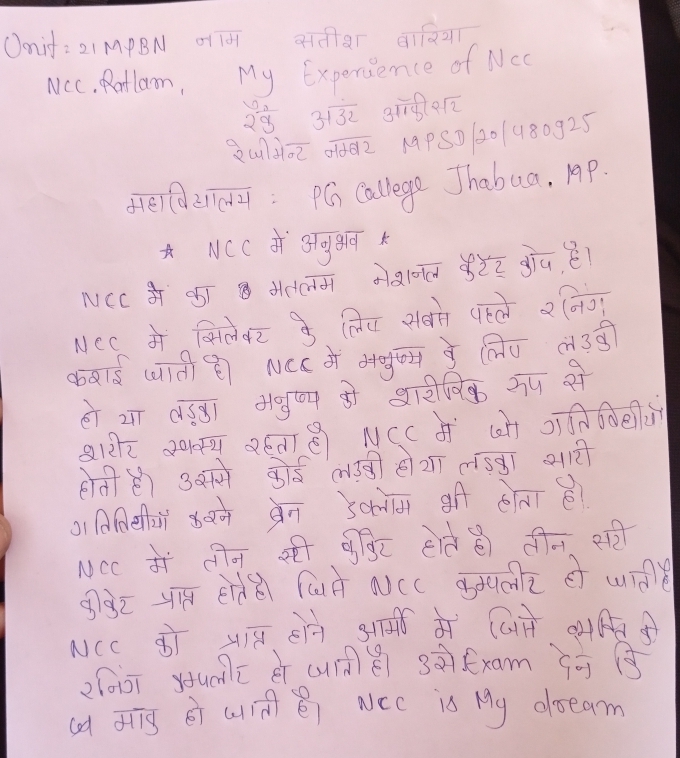 Unit: 21 MPBN नाम सतीश बारिया
NCC. Ratlam, My Experience of NCC
रैंक अडंर ऑफीसर
रेजीमेन्ट नम्बर MPSD/20/480925
महाविघालय : PG College Jhabua. MP.
* NCC में अनुभव *
NCC का मतलम नेशनल कैटेट कोप है।
NCC में सिलेक्ट के लिए सबसे पहले रनिंग
कराई जाती है। NCC में मनुष्य के लिए लड़की
हो या लड़का मनुष्य को शारीरिक रूप से
शारीर स्वस्थ रहता है। NCC में जो गतिविधीयाँ
होती है। उससे कोई लड़की हो या लड़का सारी
गतिविधीयाँ करने ब्रेन डेवलोम भी होता है।
NCC में तीन सर्टी फीकेट होते है। तीन सर्टी
फीकेट प्राप्त होते है। जिसे NCC कम्पलीट हो जाती है
NCC को प्राप्त होने आर्मी में जिसे व्यक्ति की
रनिंग कम्पलीट हो जाती है। उसे Exam देने कि
माफ हो जाती है। NCC is My dream